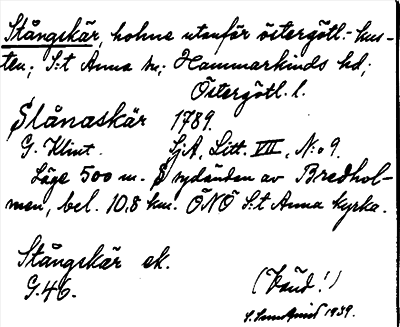 Stångskär, holme utanför östergötl.-kus-
ten; S:t Anna sn; Hammarkinds hd;
Östergötl. l.
Slånaskär 1789.
G. Klint. SjA, Litt. VII, N:o 9.
Läge 500 m. S sydändan av Bredhol-
men, bel. 10,8 km. ÖNÖ S:t Anna kyrka.
Stångskär ek.
G.46.
1939.